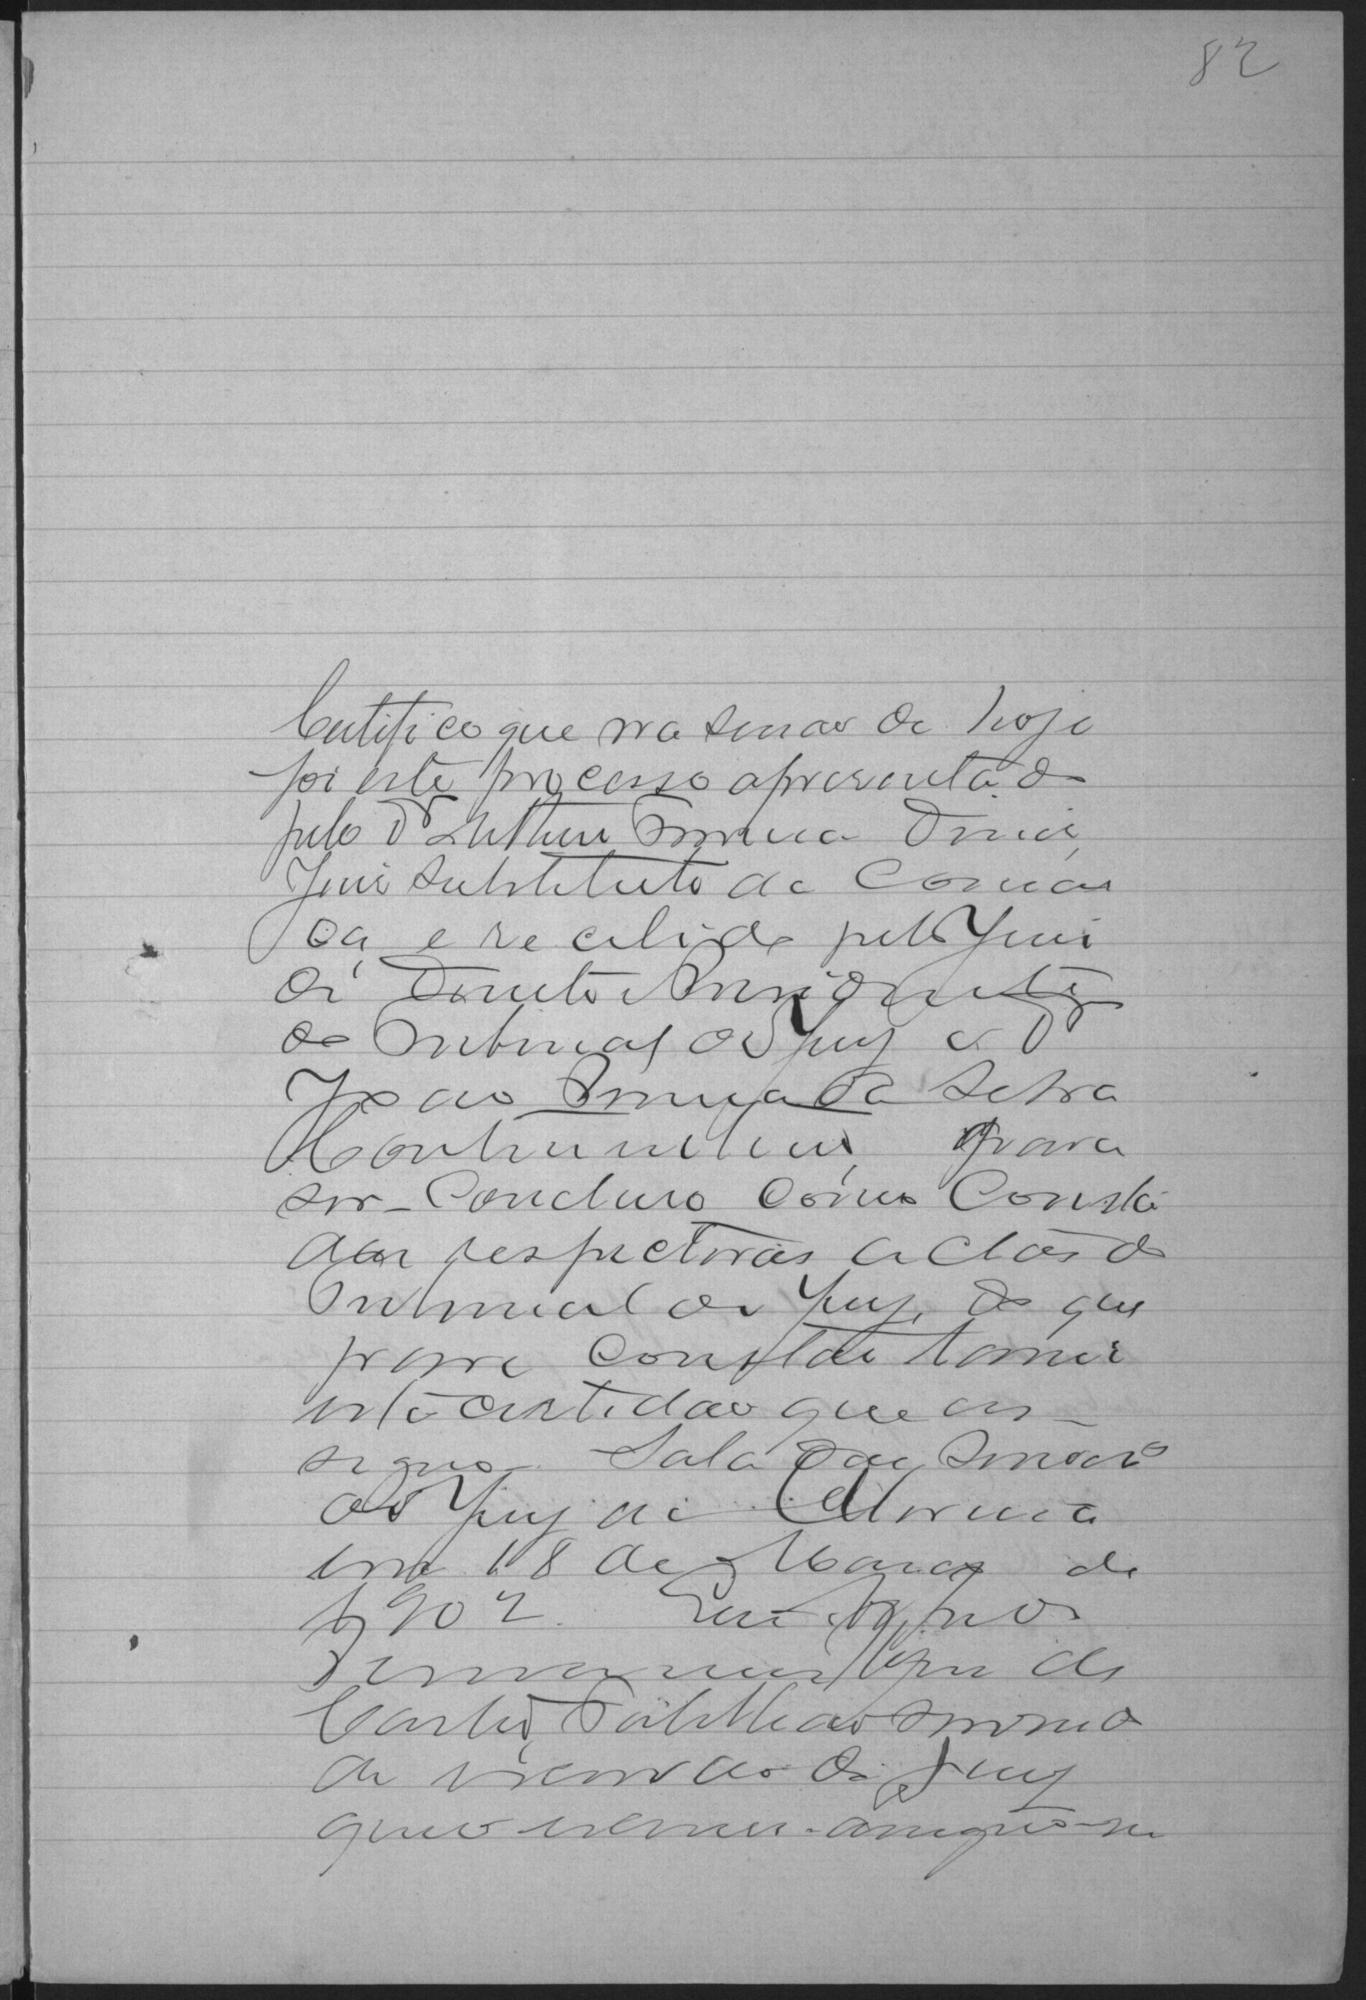 82
Certifico que na sessão de hoje
foi este processo apresentado
pelo Dr Arthur Ferreira Diniz,
Juiz substituto da Comar
ca, e recebido pelo Juiz
de Direito Presidente
do Tribunal do Jury o Dr
João Pereira da Silva
Continentino, para
ser Concluso Como Consta
das respectivas actas do
Tribunal do Jury, do que
para constar lavrei
esta certidão que as-
signo. Sala das sessões
do Jury de
em 18 de Março de
1902. Eu
de
Castro, Tabellião
de do Jury
que o escrevi assigno